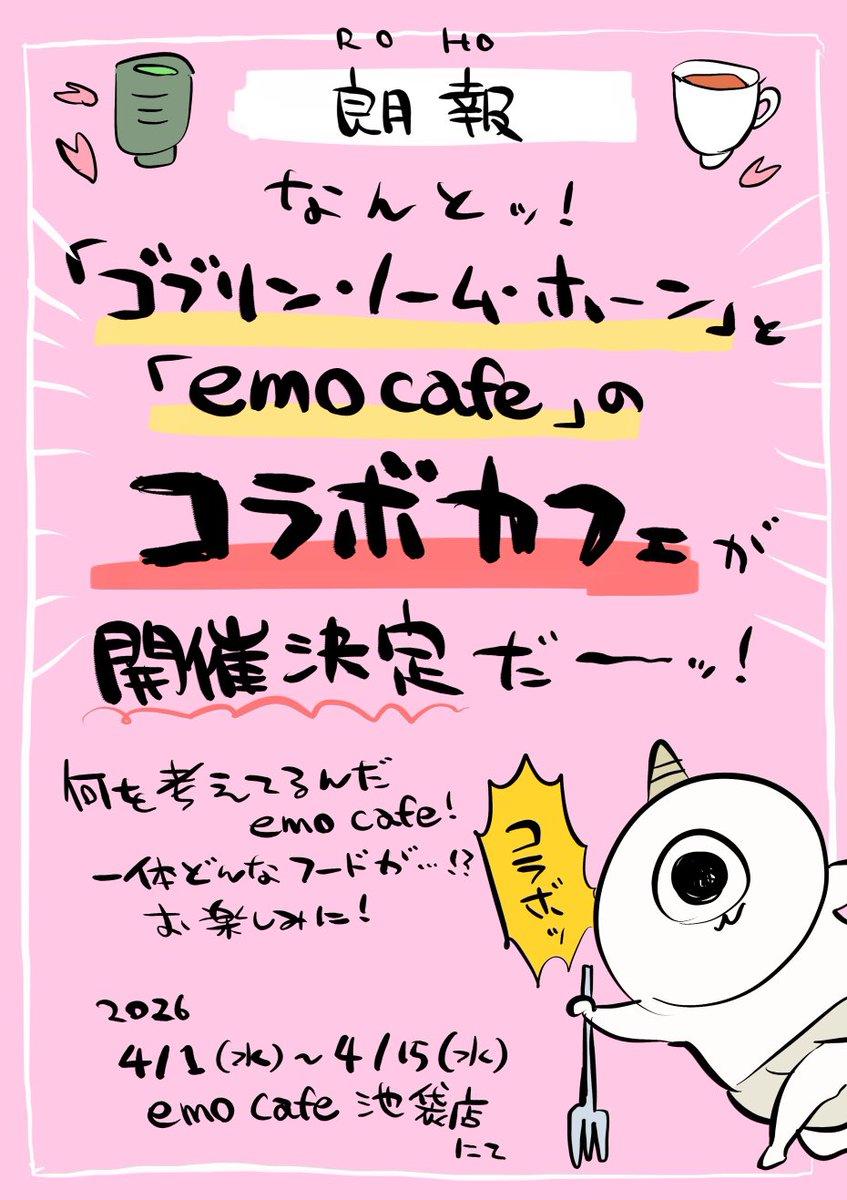 RO HO
朗報
なんとッ!
「ゴブリン・ノーム・ホーン」と
「emo cafe」の
コラボカフェが
開催決定だーッ!
何を考えてるんだ
emo cafe!
一体どんなフードが…!?
お楽しみに!
コラボッ
2026
4/1(水)~4/15(水)
emo cafe 池袋店
にて